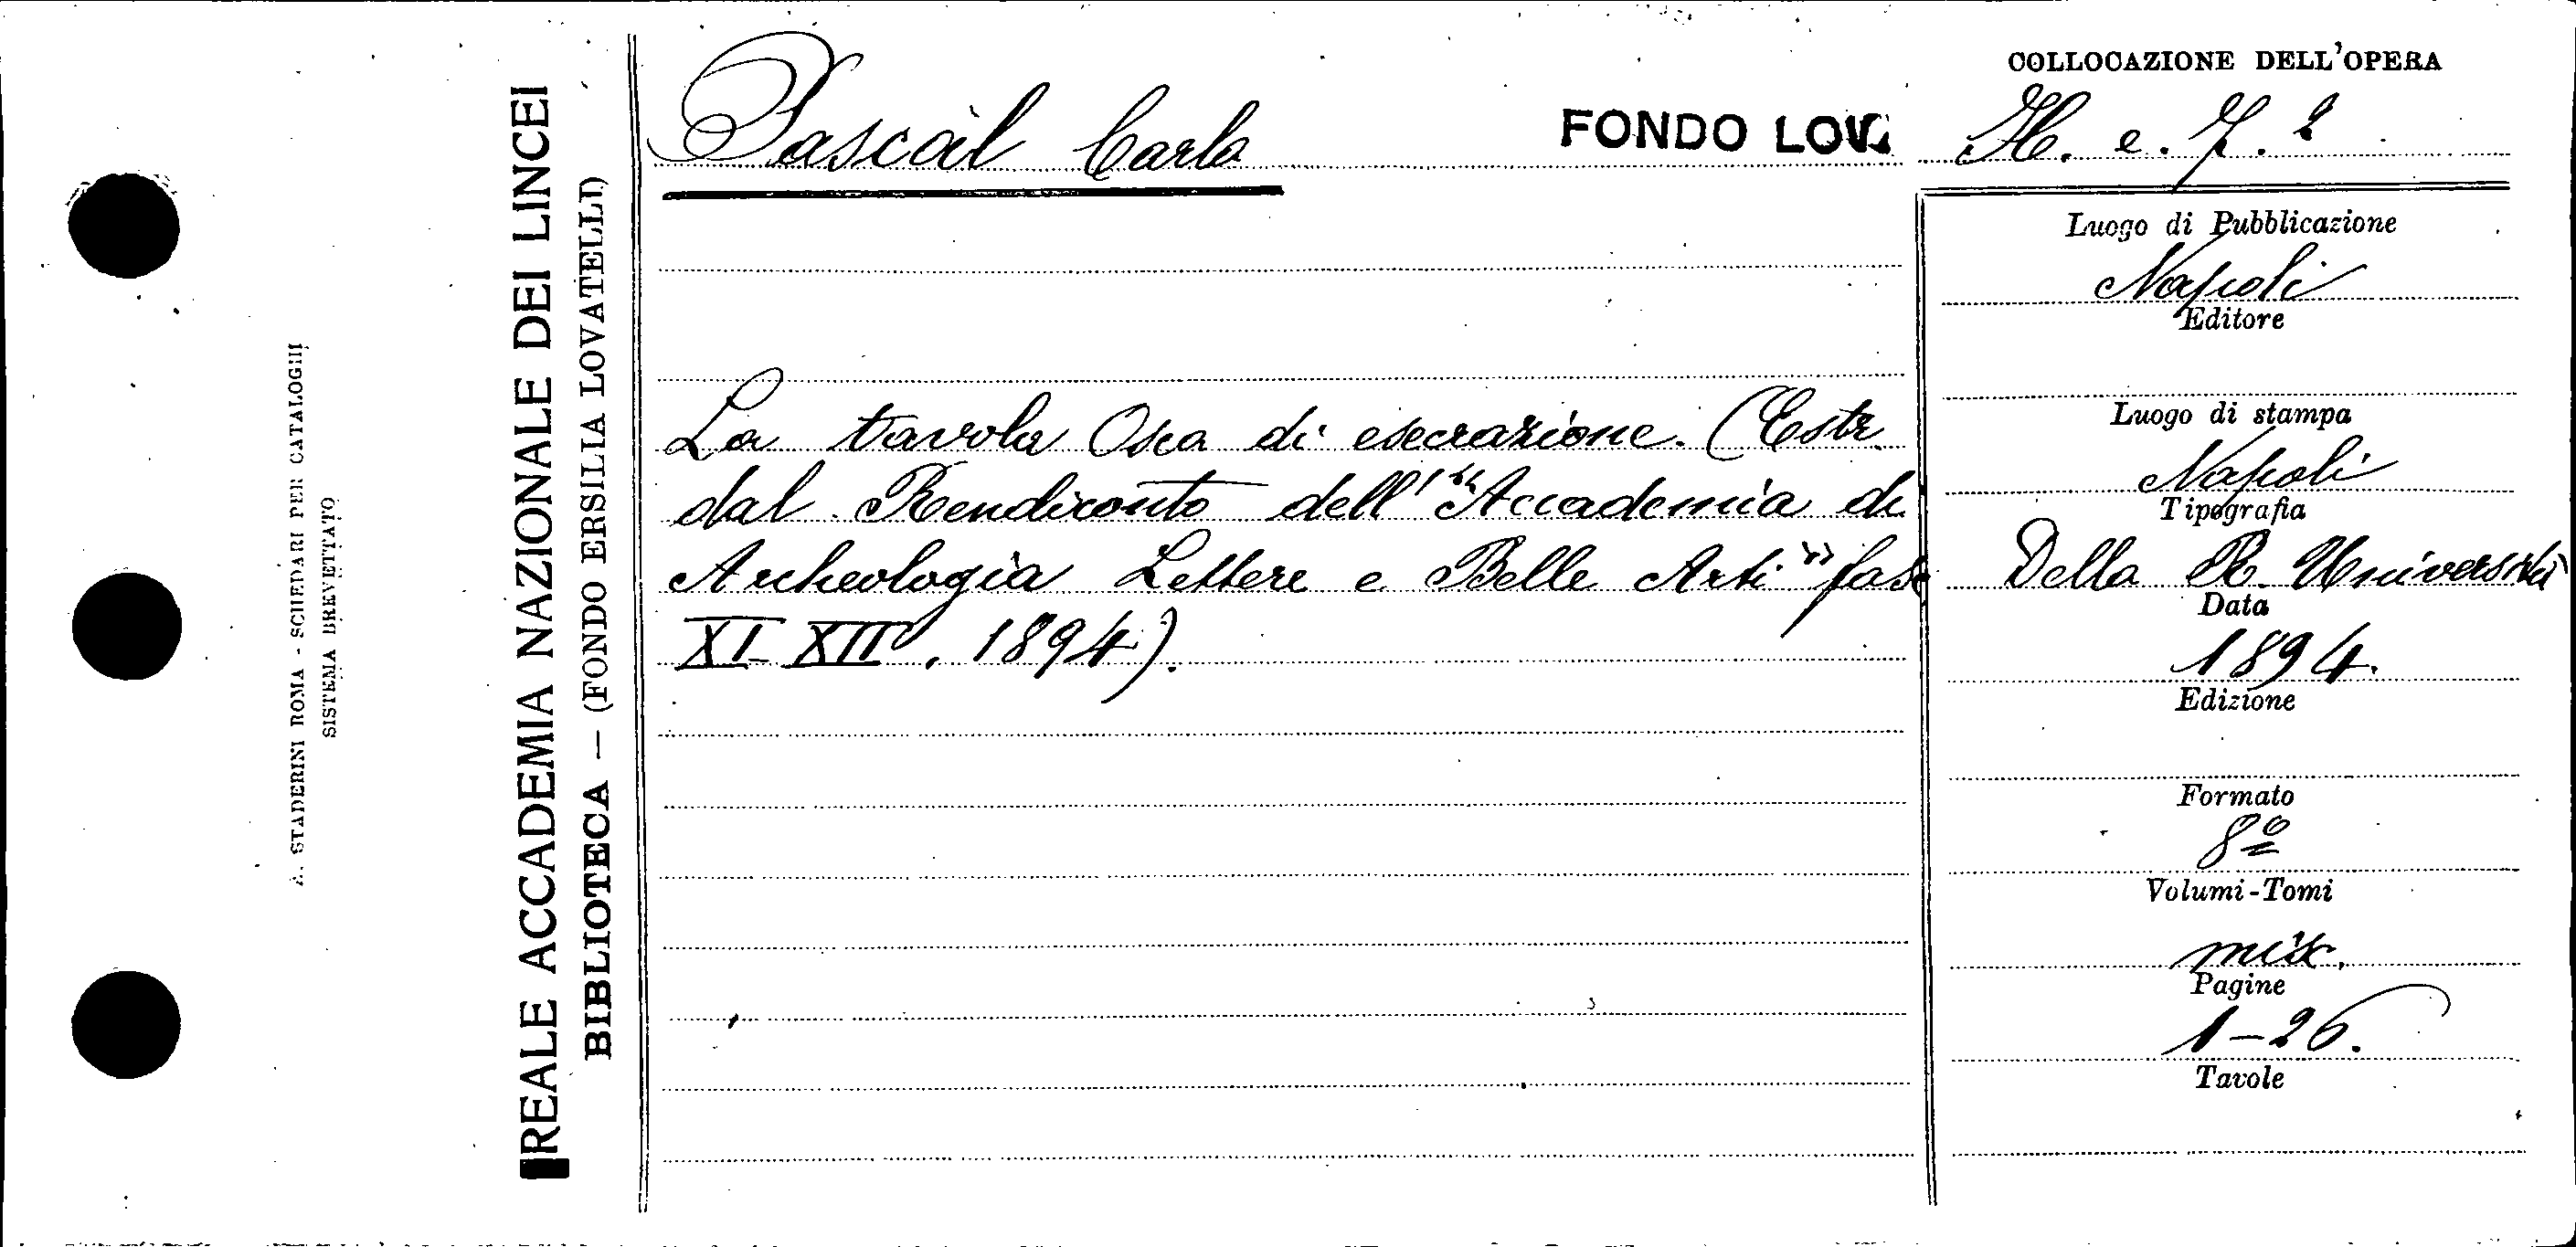 A. STADERINI ROMA - SCHEDARI PER CATALOGHI
SISTEMA BREVETTATO
REALE ACCADEMIA NAZIONALE DEI LINCEI
BIBLIOTECA — (FONDO ERSILIA LOVATELLI)
Pascal Carlo
FONDO LOV
La tavola Osca di esecrazione. (Estr.
dal Rendiconto dell' "Accademia di
Archeologia Lettere e Belle Arti" fasc
XI XII. 1894).
COLLOCAZIONE DELL'OPERA
Luogo di Pubblicazione
Napoli
Editore
Luogo di stampa
Napoli
Tipografia
Della R. Università
Data
1894.
Edizione
Formato
8º
Volumi-Tomi
Pagine
1-26.
Tavole